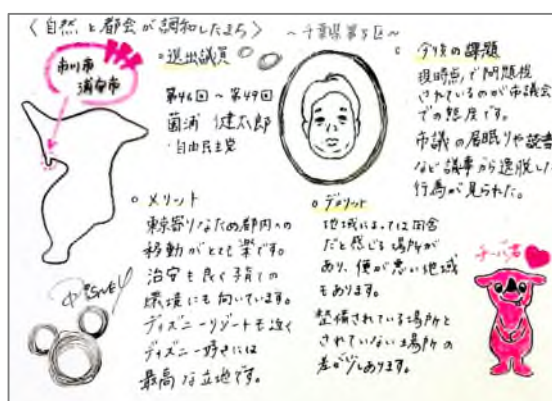 〈自然と都会が調和したまち〉 ～千葉県第5区～
市川市
浦安市
選出議員
第46回～第49回
薗浦 健太郎
・自由民主党
今後の課題
現時点で問題視
されているのが市議会
での態度です。
市議の居眠りや読書
など議事から逸脱した
行為が見られた。
メリット
東京寄りなため都内への
移動がとても楽です。
治安も良く子育ての
環境にも向いています。
ディズニーリゾートも近く
ディズニー好きには
最高な立地です。
デメリット
地域によっては田舎
だと感じる場所が
あり、便が悪い地域
もあります。
整備されている場所と
されていない場所の
差が少しあります。
チーバ君
Disney